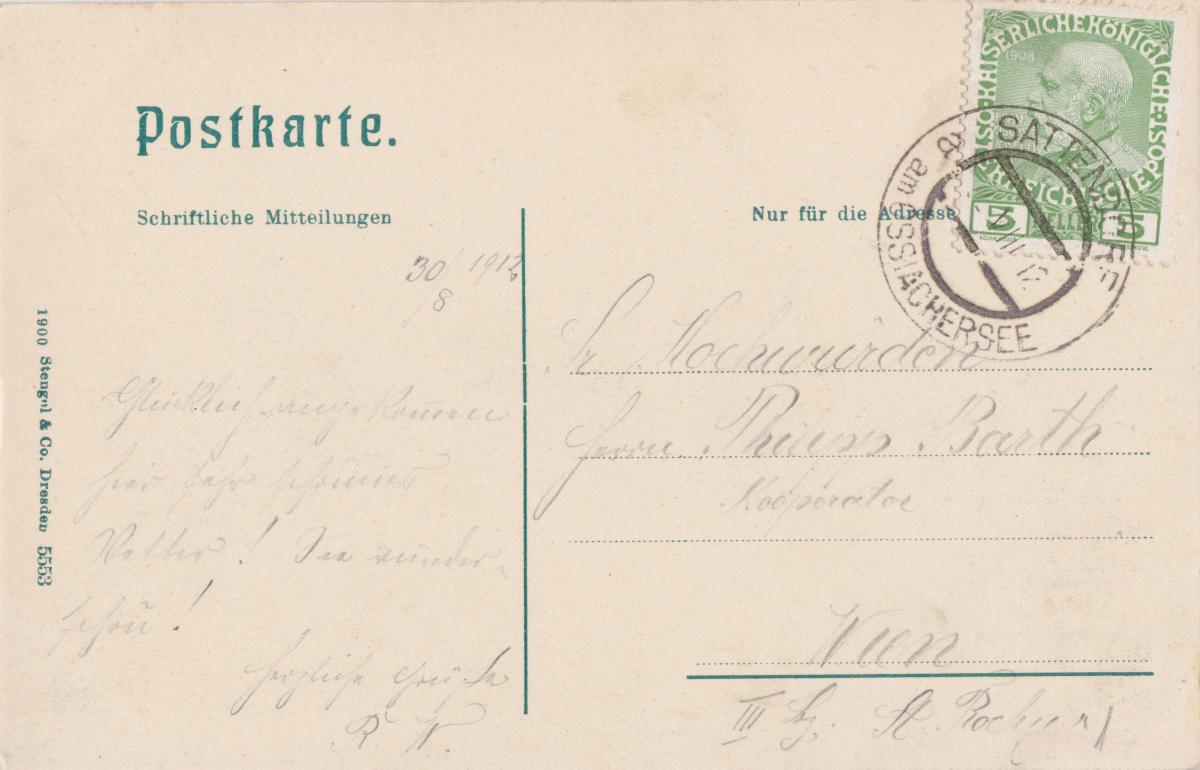 Postkarte.
Schriftliche Mitteilungen
Nur für die Adresse
KAISERLICHE KÖNIGLICHE
1908
5 HELLER 5
SATTENDORF
am OSSIACHERSEE
30/8 1912
Glücklich angekommen
hier sehr schönes
Wetter! See wunder-
schön!
Herzliche Grüße
R. W.
Sr Hochwürden
Herrn Philipp Barth
Kooperator
Wien
III Bz. St. Rochus
1900 Stengel & Co. Dresden 5553